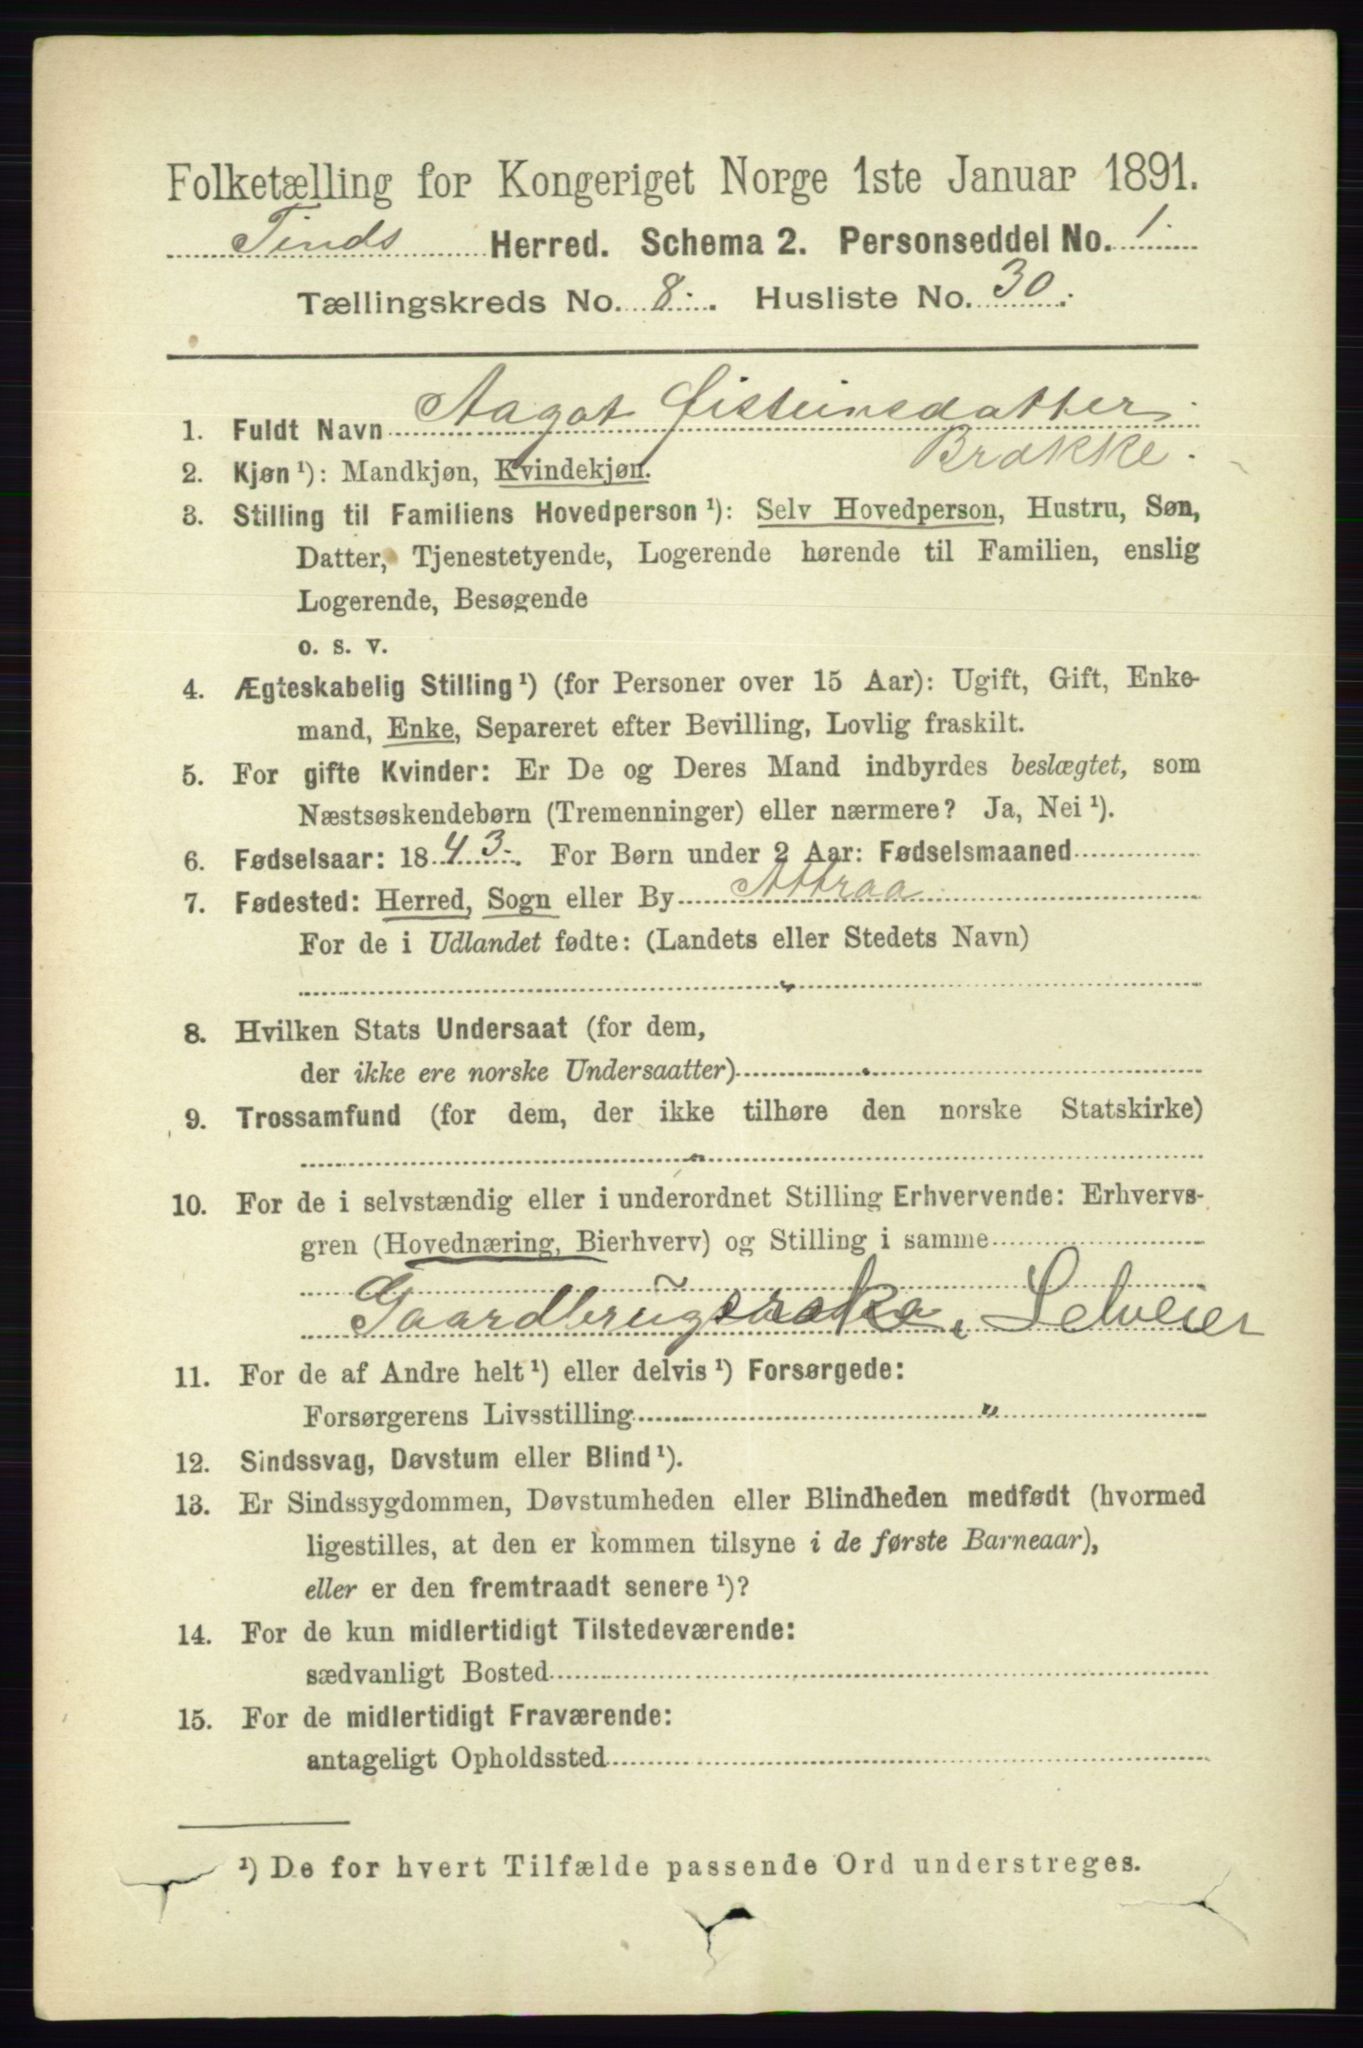 Folketælling for Kongeriget Norge 1ste Januar 1891.
Tinds Herred. Schema 2. Personseddel No. 1.
Tællingskreds No. 8. Husliste No. 30.
1. Fuldt Navn Aagot Øisteinsdatter
Brakke.
2. Kjøn ¹): Mandkjøn, Kvindekjøn.
3. Stilling til Familiens Hovedperson ¹): Selv Hovedperson, Hustru, Søn,
Datter, Tjenestetyende, Logerende hørende til Familien, enslig
Logerende, Besøgende
o. s. v.
4. Ægteskabelig Stilling ¹) (for Personer over 15 Aar): Ugift, Gift, Enke-
mand, Enke, Separeret efter Bevilling, Lovlig fraskilt.
5. For gifte Kvinder: Er De og Deres Mand indbyrdes beslægtet, som
Næstsøskendebørn (Tremenninger) eller nærmere? Ja, Nei ¹).
6. Fødselsaar: 1843. For Børn under 2 Aar: Fødselsmaaned
7. Fødested: Herred, Sogn eller By Attraa
For de i Udlandet fødte: (Landets eller Stedets Navn)
8. Hvilken Stats Undersaat (for dem,
der ikke ere norske Undersaatter)
9. Trossamfund (for dem, der ikke tilhøre den norske Statskirke)
10. For de i selvstændig eller i underordnet Stilling Erhvervende: Erhvervs-
gren (Hovednæring, Bierhverv) og Stilling i samme
Gaardbrugerske, Selveier
11. For de af Andre helt ¹) eller delvis ¹) Forsørgede:
Forsørgerens Livsstilling "
12. Sindssvag, Døvstum eller Blind ¹).
13. Er Sindssygdommen, Døvstumheden eller Blindheden medfødt (hvormed
ligestilles, at den er kommen tilsyne i de første Barneaar),
eller er den fremtraadt senere ¹)?
14. For de kun midlertidigt Tilstedeværende:
sædvanligt Bosted
15. For de midlertidigt Fraværende:
antageligt Opholdssted
¹) De for hvert Tilfælde passende Ord understreges.